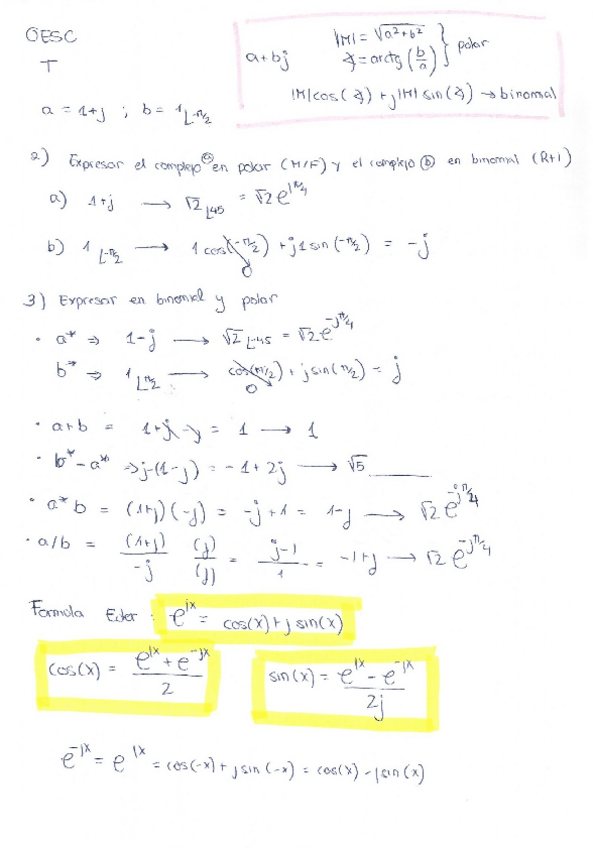 OESC
T
a+bj |M| = √a²+b² ∡ = arctg (b/a) } polar
|M|cos(∡) + j|M| sin(∡) → binomial
a = 1+j ; b = 1∟-π/2
2) Expresar el complejo ⓐ en polar (M/F) y el complejo ⓑ en binomial (R+I)
a) 1+j → √2∟45 = √2 e^jπ/4
b) 1∟-π/2 → 1 cos(-π/2) + j1 sin(-π/2) = -j
0
3) Expresar en binomial y polar
· a* ⇒ 1-j → √2∟-45 = √2 e^-jπ/4
b* ⇒ 1∟π/2 → cos(π/2) + j sin(π/2) = j
0
· a+b = 1+j-j = 1 → 1
· b*-a* ⇒ j-(1-j) = -1+2j → √5
· a*b = (1+j)(-j) = -j+1 = 1-j → √2 e^-jπ/4
· a/b = (1+j)/-j (j)/(j) = j-1/1 = -1+j → √2 e^-jπ/4
Formula Euler: e^jx = cos(x)+j sin(x)
cos(x) = e^jx + e^-jx / 2 sin(x) = e^jx - e^-jx / 2j
e^-jx = e^jx = cos(-x)+j sin(-x) = cos(x)-j sin(x)